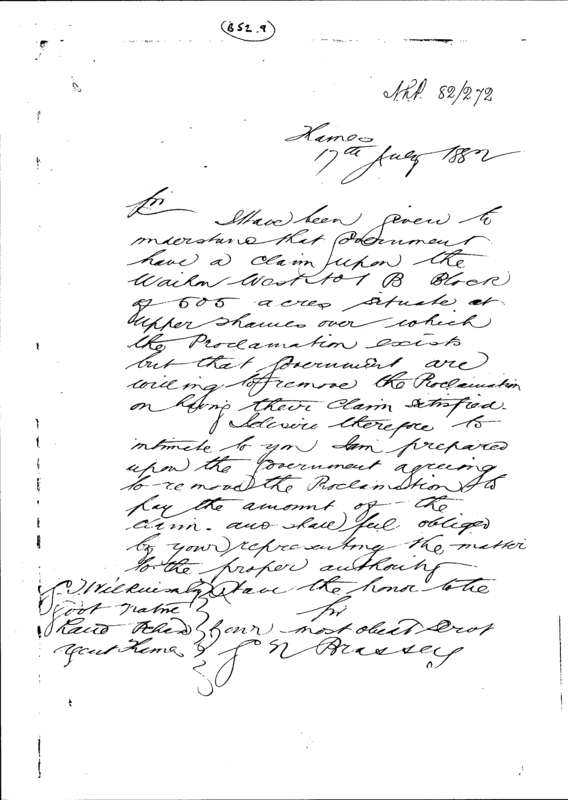 B52.9
N.L.P. 82/272
Thames
17th July 1882
Sir
I have been given to
understand that Government
have a claim upon the
West No 1 B Block
of 505 acres situate at
Upper Thames over which
the Proclamation exists
but that Government are
willing to remove the Proclamation
on having their claim satisfied.
I desire therefore to
intimate to you I am prepared
upon the Government agreeing
to remove the Proclamation to
pay the amount of the
claim. and shall feel obliged
by your representing the matter
to the proper authority
I have the honor to be
Sir
Your most obedt Servt
Brassey
G. T. Wilkinson Esq
Govt Native
Land
Agent Thames